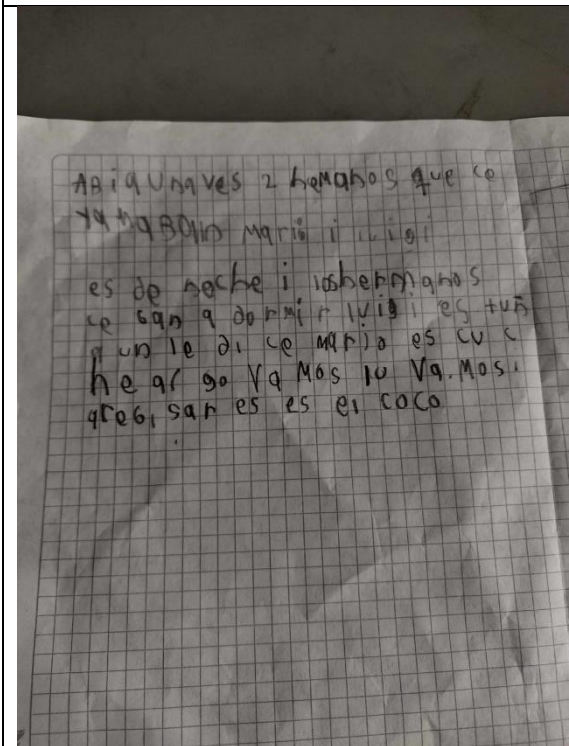 ABia Unaves 2 hemanos que ce
yamaBain Mario i luigi
es de noche i loshermanos
ce ban a dormir luigi es tun
a un le di ce mario es cu c
he al go Va Mos lo Va. Mos.
a reb, sar es es el coco